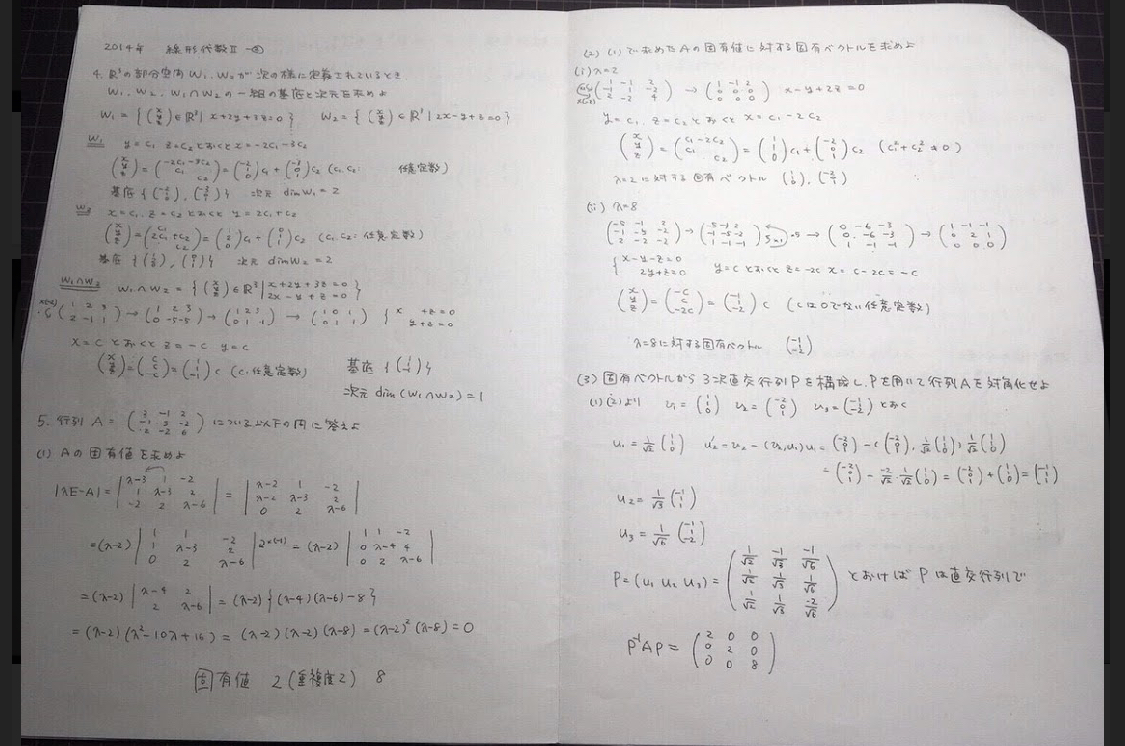 2014年 線形代数Ⅱ-④
4. R³の部分空間 W₁, W₂が次の様に定義されているとき
W₁, W₂, W₁∩W₂の一組の基底と次元を求めよ
W₁ = { (x y z) ∈ R³ | x+2y+3z=0 } W₂ = { (x y z) ∈ R³ | 2x-y+z=0 }
W₁ y=c₁ z=c₂とおくと x=-2c₁-3c₂
(x y z) = (-2c₁-3c₂ c₁ c₂) = (-2 1 0) c₁ + (-3 0 1) c₂ (c₁, c₂: 任意定数)
基底 { (-2 1 0), (-3 0 1) } 次元 dim W₁ = 2
W₂ x=c₁, z=c₂とおくと y=2c₁+c₂
(x y z) = (c₁ 2c₁+c₂ c₂) = (1 2 0) c₁ + (0 1 1) c₂ (c₁, c₂: 任意定数)
基底 { (1 2 0), (0 1 1) } 次元 dim W₂ = 2
W₁∩W₂ W₁∩W₂ = { (x y z) ∈ R³ | x+2y+3z=0 2x-y+z=0 }
(1 2 3 / 2 -1 1) → (1 2 3 / 0 -5 -5) → (1 2 3 / 0 1 1) → (1 0 1 / 0 1 1) { x +z=0 y+z=0
x=cとおくと z=-c y=c
(x y z) = (c c -c) = (1 1 -1) c (c: 任意定数) 基底 { (1 1 -1) }
次元 dim (W₁∩W₂) = 1
5. 行列 A = (3 -1 2 / -1 3 -2 / 2 -2 6) について以下の問に答えよ
(1) Aの固有値を求めよ
|λE-A| = | λ-3 1 -2 / 1 λ-3 2 / -2 2 λ-6 | = | λ-2 1 -2 / λ-2 λ-3 2 / 0 2 λ-6 |
=(λ-2) | 1 1 -2 / 1 λ-3 2 / 0 2 λ-6 | = (λ-2) | 1 1 -2 / 0 λ-4 4 / 0 2 λ-6 |
=(λ-2) | λ-4 2 / 2 λ-6 | = (λ-2) { (λ-4)(λ-6)-8 }
= (λ-2)(λ²-10λ+16) = (λ-2)(λ-2)(λ-8) = (λ-2)²(λ-8) = 0
固有値 2 (重複度2) 8
(2) (1)で求めたAの固有値に対する固有ベクトルを求めよ
(i) λ=2
(1 -1 2 / -1 1 -2 / 2 -2 4) → (1 -1 2 / 0 0 0 / 0 0 0) x-y+2z=0
y=c₁, z=c₂とおくと x=c₁-2c₂
(x y z) = (c₁-2c₂ c₁ c₂) = (1 1 0) c₁ + (-2 0 1) c₂ (c₁²+c₂²≠0)
λ=2に対する固有ベクトル (1 1 0), (-2 0 1)
(ii) λ=8
(-5 -1 2 / -1 -5 -2 / 2 -2 -2) → (-5 -1 2 / -1 -5 -2 / 1 -1 -1) → (0 -6 -3 / 0 -6 -3 / 1 -1 -1) → (1 -1 -1 / 0 2 1 / 0 0 0)
{ x-y-z=0 2y+z=0 y=cとおくと z=-2c x=c-2c=-c
(x y z) = (-c c -2c) = (-1 1 -2) c (cは0でない任意定数)
λ=8に対する固有ベクトル (-1 1 -2)
(3) 固有ベクトルから3次直交行列Pを構成し、Pを用いて行列Aを対角化せよ
(1)(2)より v₁ = (1 1 0) v₂ = (-2 0 1) v₃ = (-1 1 -2) とおく
u₁ = 1/√2 (1 1 0) u₂' = v₂ - (v₂,u₁)u₁ = (-2 0 1) - ( (-2 0 1), 1/√2 (1 1 0) ) 1/√2 (1 1 0)
= (-2 0 1) - -2/√2 · 1/√2 (1 1 0) = (-2 0 1) + (1 1 0) = (-1 1 1)
u₂ = 1/√3 (-1 1 1)
u₃ = 1/√6 (-1 1 -2)
P = (u₁ u₂ u₃) = (1/√2 -1/√3 -1/√6 / 1/√2 1/√3 1/√6 / 1/√2 1/√3 -2/√6) とおけば Pは直交行列で
P⁻¹AP = (2 0 0 / 0 2 0 / 0 0 8)